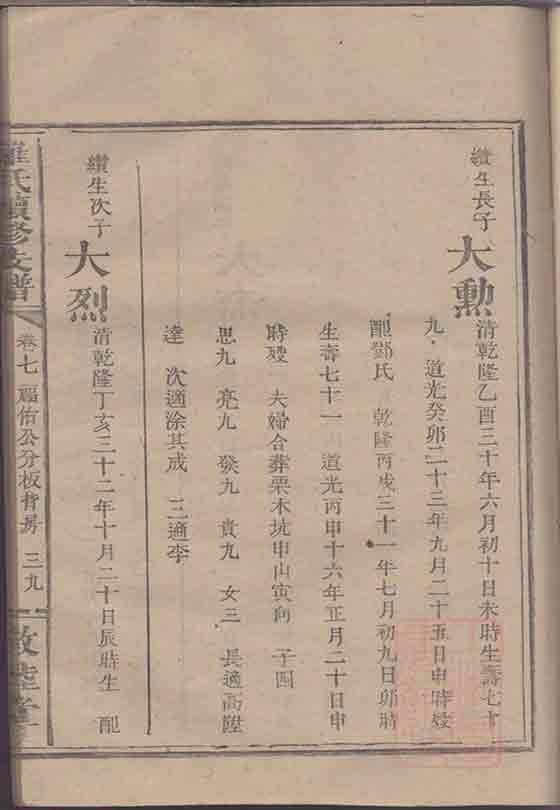 纘生長子
大勳
清乾隆乙酉三十年六月初十日未時生壽七十
九 道光癸卯二十三年九月二十五日申時歿
配鄧氏 乾隆丙戌三十一年七月初九日卯時
生壽七十一 道光丙申十六年正月二十日申
時歿 夫婦合葬栗木坑申山寅向 子四
思九 亮九 發九 貴九 女三 長適高陞
達 次適涂其成 三適李
纘生次子
大烈
清乾隆丁亥三十二年十月二十日辰時生 配
羅氏續修支譜
卷七 福佑公分板背房 三九
敦睦堂